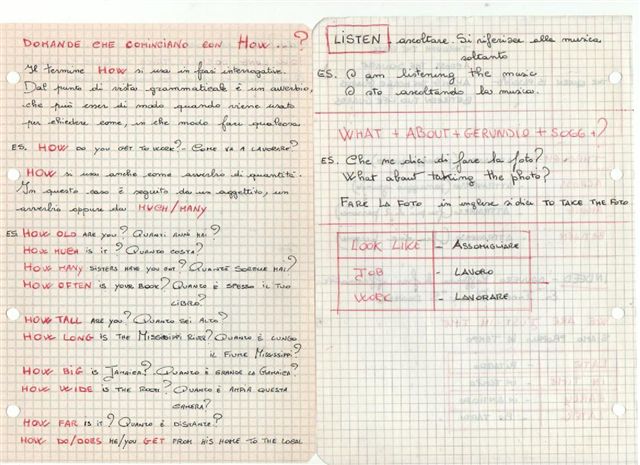 DOMANDE CHE COMINCIANO CON HOW...?
Il termine HOW si usa in frasi interrogative.
Dal punto di vista grammaticale è un avverbio,
che può esser di modo quando viene usato
per chiedere come, in che modo fare qualcosa
ES. HOW DO YOU GET TO WORK? - COME VA A LAVORARE?
HOW si usa anche come avverbio di quantità.
In questo caso è seguito da un aggettivo, un
avverbio oppure da MUCH/MANY
ES. HOW OLD ARE YOU? QUANTI ANNI HAI?
HOW MUCH IS IT? QUANTO COSTA?
HOW MANY SISTERS HAVE YOU GOT? QUANTE SORELLE HAI?
HOW OFTEN IS YOUR BOOK? QUANTO È SPESSO IL TUO
LIBRO?
HOW TALL ARE YOU? QUANTO SEI ALTO?
HOW LONG IS THE MISSISSIPPI RIVER? QUANTO È LUNGO
IL FIUME MISSISSIPPI?
HOW BIG IS JAMAICA? - QUANTO È GRANDE LA GIAMAICA?
HOW WIDE IS THE ROOM? QUANTO È AMPIA QUESTA
CAMERA?
HOW FAR IS IT? QUANTO È DISTANTE?
HOW DO/DOES HE/YOU GET FROM HIS HOME TO THE LOCAL
LISTEN ascoltare. Si riferisce alla musica
soltanto
ES. I am listening the music
Io sto ascoltando la musica.
WHAT + ABOUT + GERUNDIO + SOGG + ?
ES. Che ne dici di fare la foto?
What about taking the photo?
FARE LA FOTO in inglese si dice TO TAKE THE FOTO
LOOK LIKE - ASSOMIGLIARE
JOB - LAVORO
WORK - LAVORARE